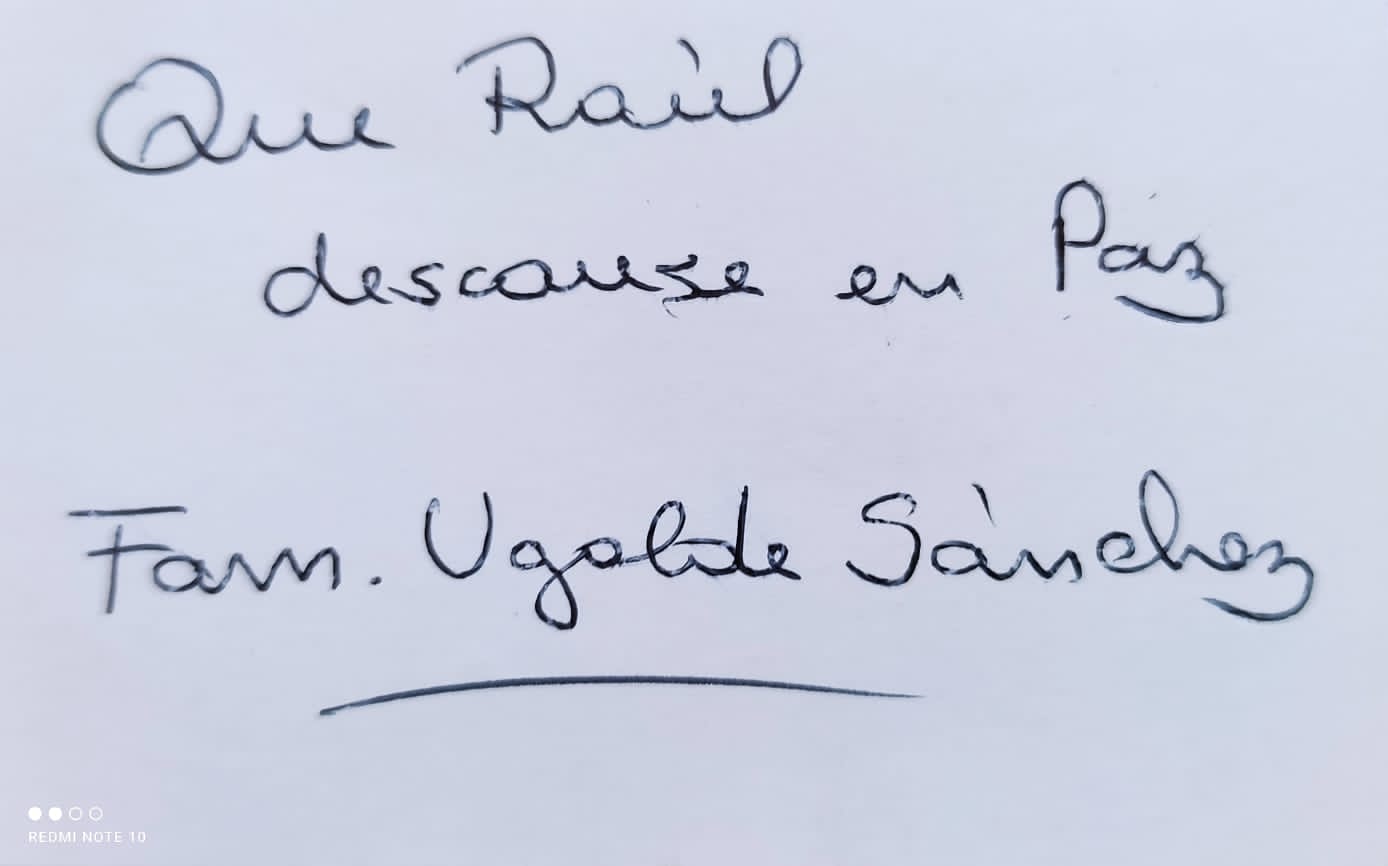 Que Raúl
descanse en Paz
Fam. Ugalde Sánchez
REDMI NOTE 10